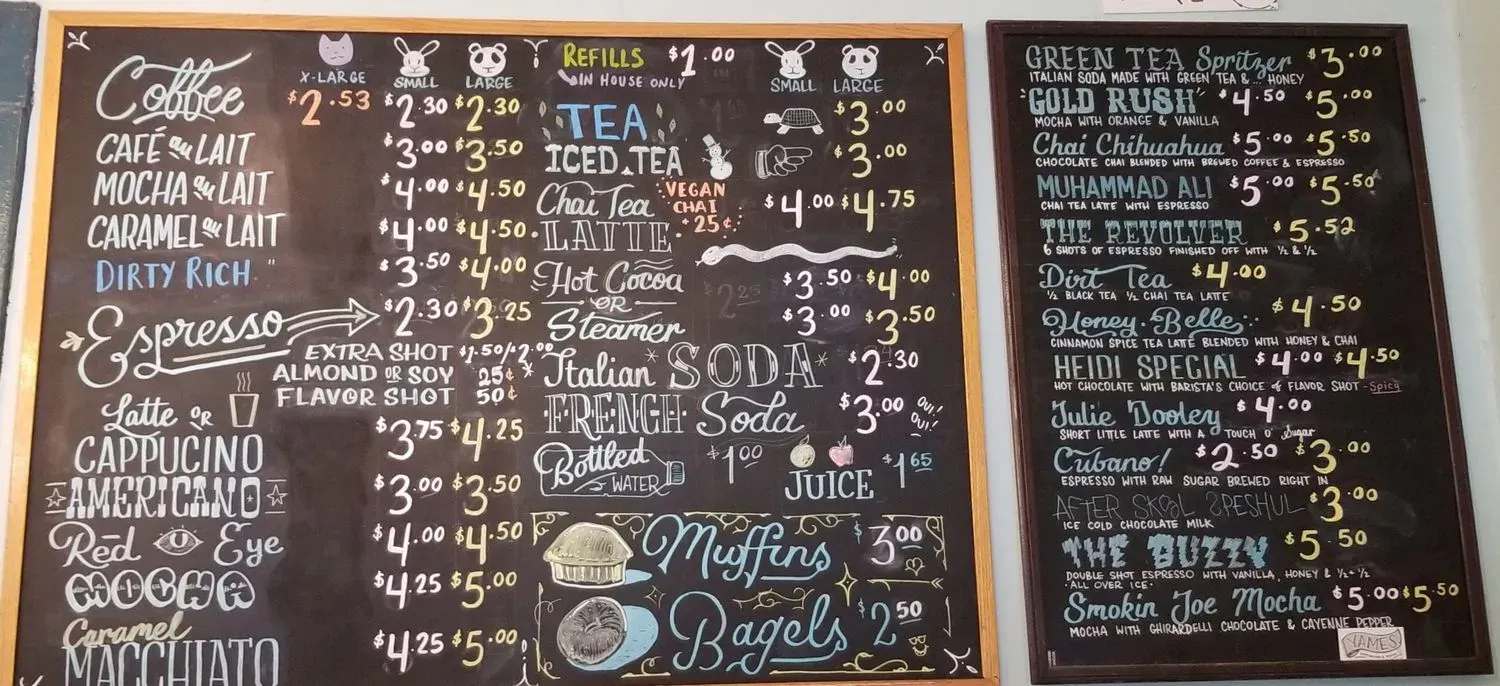 X-LARGE SMALL LARGE
Coffee $2.53 $2.30 $2.30
CAFÉ au LAIT $3.00 $3.50
MOCHA au LAIT $4.00 $4.50
CARAMEL au LAIT $4.00 $4.50
DIRTY RICH " $3.50 $4.00
Espresso $2.30 $3.25
EXTRA SHOT $1.50/$2.00
ALMOND OR SOY 25¢ *
FLAVOR SHOT 50¢
Latte OR
CAPPUCINO $3.75 $4.25
AMERICANO $3.00 $3.50
Red Eye $4.00 $4.50
MOCHA $4.25 $5.00
Caramel
MACCHIATO $4.25 $5.00
REFILLS $1.00
IN HOUSE ONLY
SMALL LARGE
TEA $3.00
ICED TEA $3.00
Chai Tea
LATTE $4.00 $4.75
VEGAN
CHAI
+25¢
Hot Cocoa $3.50 $4.00
OR
Steamer $3.00 $3.50
Italian SODA $2.30
FRENCH Soda $3.00
OUI!
OUI!
Bottled
WATER $1.00
JUICE $1.65
Muffins $3.00
Bagels $2.50
GREEN TEA Spritzer $3.00
ITALIAN SODA MADE WITH GREEN TEA &... HONEY
"GOLD RUSH" $4.50 $5.00
MOCHA WITH ORANGE & VANILLA
Chai Chihuahua $5.00 $5.50
CHOCOLATE CHAI BLENDED WITH BREWED COFFEE & ESPRESSO
MUHAMMAD ALI $5.00 $5.50
CHAI TEA LATTE WITH ESPRESSO
THE REVOLVER $5.52
6 SHOTS OF ESPRESSO FINISHED OFF WITH ½ & ½
Dirt Tea $4.00
½ BLACK TEA ½ CHAI TEA LATTE
Honey Belle $4.50
CINNAMON SPICE TEA LATTE BLENDED WITH HONEY & CHAI
HEIDI SPECIAL $4.00 $4.50
HOT CHOCOLATE WITH BARISTA'S CHOICE of FLAVOR SHOT - Spicy
Julie Dooley $4.00
SHORT LITTLE LATTE WITH A TOUCH O' Sugar
Cubano! $2.50 $3.00
ESPRESSO WITH RAW SUGAR BREWED RIGHT IN
AFTER SKOOL SPESHUL $3.00
ICE COLD CHOCOLATE MILK
THE BUZZY $5.50
DOUBLE SHOT ESPRESSO WITH VANILLA, HONEY & ½ + ½
·ALL OVER ICE·
Smokin Joe Mocha $5.00 $5.50
MOCHA WITH GHIRARDELLI CHOCOLATE & CAYENNE PEPPER
YAMES